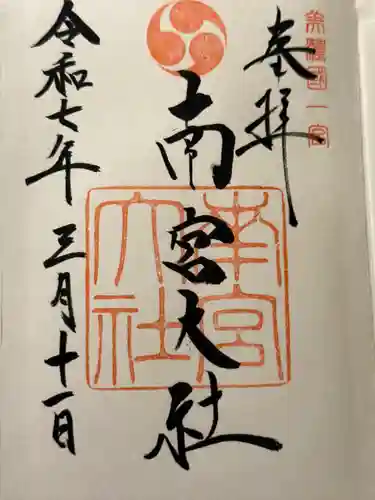 美濃國一宮
奉拝
南宮大社
南宮大社
令和七年 三月十一日